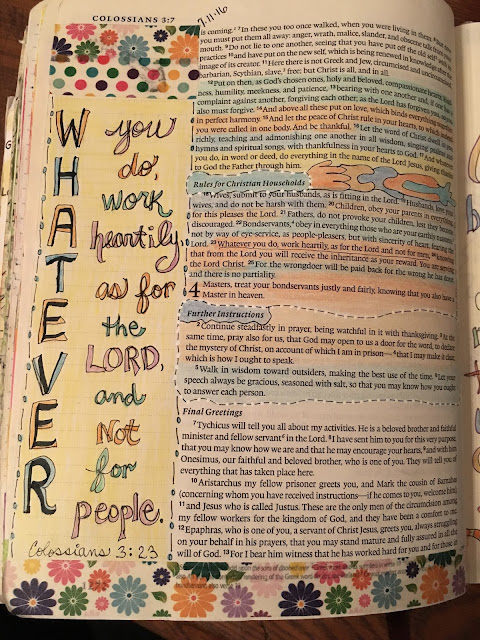 COLOSSIANS 3:7
7-11-16
WHATEVER
you
do,
work
heartily,
as for
the
LORD,
and
Not
for
people.
Colossians 3:23
is coming. 7 In these you too once walked, when you were living in them. 8 But now
you must put them all away: anger, wrath, malice, slander, and obscene talk from your
mouth. 9 Do not lie to one another, seeing that you have put off the old self with its
practices 10 and have put on the new self, which is being renewed in knowledge after the
image of its creator. 11 Here there is not Greek and Jew, circumcised and uncircumcised,
barbarian, Scythian, slave, free; but Christ is all, and in all.
12 Put on then, as God's chosen ones, holy and beloved, compassionate hearts, kind-
ness, humility, meekness, and patience, 13 bearing with one another and, if one has a
complaint against another, forgiving each other; as the Lord has forgiven you, so you
also must forgive. 14 And above all these put on love, which binds everything together
in perfect harmony. 15 And let the peace of Christ rule in your hearts, to which indeed
you were called in one body. And be thankful. 16 Let the word of Christ dwell in you
richly, teaching and admonishing one another in all wisdom, singing psalms and
hymns and spiritual songs, with thankfulness in your hearts to God. 17 And whatever
you do, in word or deed, do everything in the name of the Lord Jesus, giving thanks
to God the Father through him.
Rules for Christian Households
18 Wives, submit to your husbands, as is fitting in the Lord. 19 Husbands, love your
wives, and do not be harsh with them. 20 Children, obey your parents in everything,
for this pleases the Lord. 21 Fathers, do not provoke your children, lest they become
discouraged. 22 Bondservants, obey in everything those who are your earthly masters,
not by way of eye-service, as people-pleasers, but with sincerity of heart, fearing the
Lord. 23 Whatever you do, work heartily, as for the Lord and not for men, 24 knowing
that from the Lord you will receive the inheritance as your reward. You are serving
the Lord Christ. 25 For the wrongdoer will be paid back for the wrong he has done,
and there is no partiality.
4 Masters, treat your bondservants justly and fairly, knowing that you also have a
Master in heaven.
Further Instructions
2 Continue steadfastly in prayer, being watchful in it with thanksgiving. 3 At the
same time, pray also for us, that God may open to us a door for the word, to declare
the mystery of Christ, on account of which I am in prison— 4 that I may make it clear,
which is how I ought to speak.
5 Walk in wisdom toward outsiders, making the best use of the time. 6 Let your
speech always be gracious, seasoned with salt, so that you may know how you ought
to answer each person.
Final Greetings
7 Tychicus will tell you all about my activities. He is a beloved brother and faithful
minister and fellow servant in the Lord. 8 I have sent him to you for this very purpose,
that you may know how we are and that he may encourage your hearts, 9 and with him
Onesimus, our faithful and beloved brother, who is one of you. They will tell you of
everything that has taken place here.
10 Aristarchus my fellow prisoner greets you, and Mark the cousin of Barnabas
(concerning whom you have received instructions—if he comes to you, welcome him),
11 and Jesus who is called Justus. These are the only men of the circumcision among
my fellow workers for the kingdom of God, and they have been a comfort to me.
12 Epaphras, who is one of you, a servant of Christ Jesus, greets you, always struggling
on your behalf in his prayers, that you may stand mature and fully assured in all the
will of God. 13 For I bear him witness that he has worked hard for you and for those in